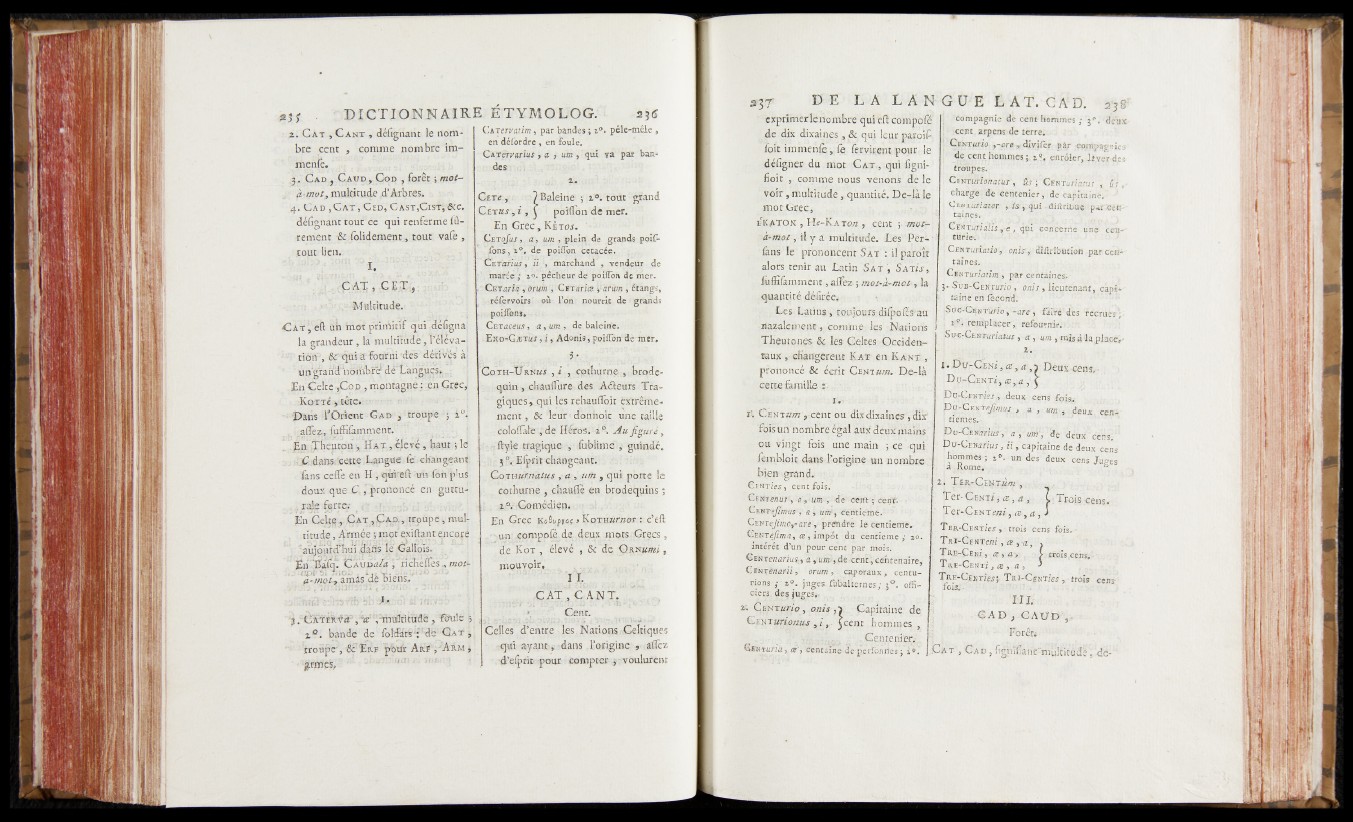 235 DICTIONNAIRE ÉTYMOLOG. 236
2. CAT, CANT, déſignant le nom-
bre cent , comme nombre im-
menſe.
3. CAD, CAUD, COD, forêt; mot-
à-mot, multitude d'Arbres.
4. CAD, CAT, CED, CAST, CIST, &c.
déſignant tout ce qui renferme ſû-
rement & ſolidement, tout vaſe,
tout lien.
I.
CAT, CET,
Multitude.
CAT, eſt un mot primitif qui déſigna
la grandeur, la multitude, l'éléva-
tion, & qui a fourni des dérivés à
un grand nombre de Langues.
En Celte, COD, montagne: en Grec,
KOTTÉ, tête.
Dans l'Orient GAD, troupe; 2°.
aſſez, ſuffiſamment.
En Theuton, HAT, élevé, haut; le
C dans cette Langue ſe changeant
ſans ceſſe en H, qui eſt un ſon plus
doux que C, prononcé en guttu-
rale forte.
En Celte, CAT, CAD, troupe, mul-
titude, Armée; mot exiſtant encore
aujourd'hui dans le Gallois.
En Baſq. CAUDala, richeſſes, mot-
à-mot, amas de biens.
1.
1. CATERVa, æ, multitude, foule;
2°. bande de ſoldats: de CAT,
troupe, & ERF pour ARF, ARM,
armes.
CATervatim, par bandes; 2°. pêle-mêle,
en déſordre, en foule.
CATervarius, a, um, qui va par ban-
des
2.
CETE, } Baleine; 2°. tout grand
CETUS, i, } poiſſon de mer.
En Grec, KÊTos.
CEToſus, a, um, plein de grands poiſ-
ſons, 2°. de poiſſon cetacée.
CETarius, ii, marchand, vendeur de
marée; 2°. pêcheur de poiſſon de mer.
CETaria, orum, CETariæ, arum, étangs,
réſervoirs où l'on nourrit de grands
poiſſons.
CETaceus, a, um, de baleine.
EXO-CÆTus, i, Adonis, poiſſon de mer.
3.
COTH-URNus, i, cothurne, brode-
quin, chauſſure des Acteurs Tra-
giques, qui les rehauſſoit extrême-
ment, & leur donnoit une taille
coloſſale, de Héros. 2°. Au figuré,
ſtyle tragique, ſublime, guindé.
3°. Eſprit changeant.
COTHurnatus, a, um, qui porte le
cothurne, chauſſé en brodequins;
2°. Comédien.
En Grec Κοθυρνος, KOTHurnor: c'eſt
un compoſé de deux mots Grecs,
de KOT, élevé, & de ORNumi,
mouvoir.
II.
CAT, CANT.
Cent.
Celles d'entre les Nations Celtiques
qui ayant, dans l'origine, aſſez
d'eſprit pour compter, voulurent
237 DE LA LANGUE LAT. CAD. 238
exprimer le nombre qui eſt compoſé
de dix dixaines, & qui leur paroiſ-
ſoit immenſe, ſe ſervirent pour le
déſigner du mot CAT, qui ſigni-
fioit, comme nous venons de le
voir, multitude, quantité. De-là le
mot Grec,
EKATON, He-KATon, cent; mot-
à-mot, il y a multitude. Les Per-
ſans le prononcent SAT: il paroît
alors tenir au Latin SAT, SATis,
ſuffiſamment, aſſez; mot-à-mot, la
quantité déſirée.
Les Latins, toujours diſpoſés au
nazalement, comme les Nations
Theutones & les Celtes Occiden-
taux, changerent KAT en KANT,
prononcé & écrit CENTum. De-là
cette famille:
1.
1. CENTum, cent ou dix dixaines, dix
fois un nombre égal aux deux mains
ou vingt fois une main; ce qui
ſembloit dans l'origine un nombre
bien grand.
CENTies, cent fois.
CENTenus, a, um, de cent; cent.
CENTeſimus, a, um, centieme.
CENTeſimo, -are, prendre le centieme.
CENTeſima, æ, impôt du centieme; 2°.
intérêt d'un pour cent par mois.
CENTenarius, a, um, de cent, centenaire,
CENTenarii, orum, caporaux, centu-
rions; 2°. juges ſubalternes; 3°. offi-
ciers des juges.
2. CENTurio, onis, } Capitaine de
CENTurionus, i, } cent hommes,
Centenier.
CENTuria, æ, centaine de perſonnes; 2°.
compagnie de cent hommes; 3°. deux
cent arpens de terre.
CENTurio, -are, diviſer par compagnies
de cent hommes; 2°. enrôler, lever des
troupes.
CENTurionatus, ûs; CENTuriatus, ûs,
charge de centenier, de capitaine.
CENTuriator, is, qui diſtribue par cen-
taines.
CENTurialis, e, qui concerne une cen-
turie.
CENTuriatio, onis, diſtribution par cen-
taines.
CENTuriatim, par centaines.
3. SUB-CENTurio, onis, lieutenant, capi-
taine en ſecond.
SUC-CENTurio, -are, faire des recrues;
2°. remplacer, refournir.
SUC-CENTuriatus, a, um, mis à la place.
2.
1. DU-CENi, æ, a, } Deux cens.
DU-CENTi, æ, a, }
DU-CENTies, deux cens fois.
DU-CENTeſimus, a, um, deux cen-
tiemes.
DU-CENarius, a, um, de deux cens.
DU-CENarius, ii, capitaine de deux cens
hommes; 2°. un des deux cens Juges
à Rome.
2. TER-CENTùm,
Ter-CENTi, æ, a, } Trois cens.
Ter-CENTeni, æ, a,
TER-CENTies, trois cens fois.
TRI-CENTeni, æ, a,
TRE-CENi, æ, a, } trois cens.
TRE-CENTi, æ, a,
TRE-CENTies; TRI-CENTies, trois cens
fois.
III.
CAD, CAUD,
Forêt.
CAT, CAD, ſignifiant multitude, dé-